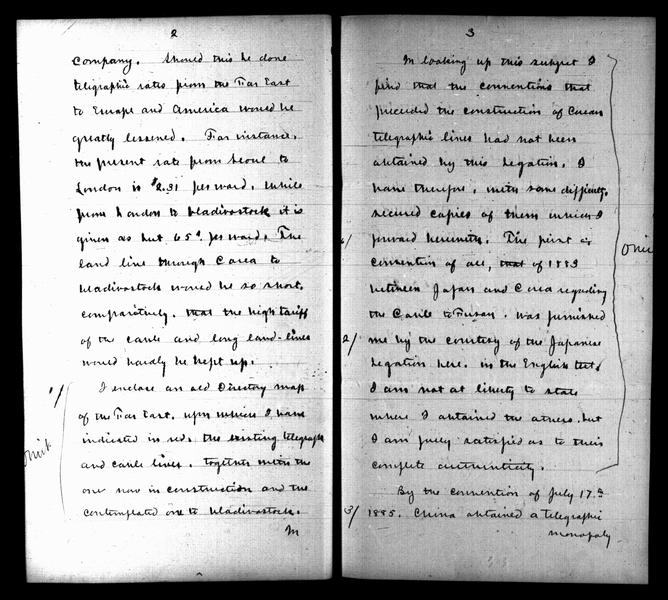 2
Company. Should this be done
telegraphic rates from the Far East
to Europe and America would be
greatly lessened. For instance,
the present rate from Seoul to
London is $2.31 per word, while
from London to Wladivostock it is
given as but 65¢ per word. The
land line through Corea to
Wladivostock would be so short,
comparatively, that the high tariff
of the cable and long land-lines
would hardly be kept up.
1/ I enclose an old Directory map
of the Far East, upon which I have
Omit
indicated in red, the existing telegraph
and cable lines, together with the
one now in construction and the
contemplated one to Wladivostock.
In
3
In looking up this subject I
find that the conventions that
preceded the construction of Corean
telegraphic lines had not been
obtained by this Legation. I
have therefore, with some difficulty,
secured copies of them which I
1/ forward herewith. The first
Omit
convention of all, that of 1883
between Japan and Corea regarding
the Cable to Fusan, was furnished
2/ me by the courtesy of the Japanese
Legation here, in the English text.
I am not at liberty to state
where I obtained the others, but
I am fully satisfied as to their
complete authenticity.
By the convention of July 17th
3/ 1885, China obtained a telegraphic
monopoly